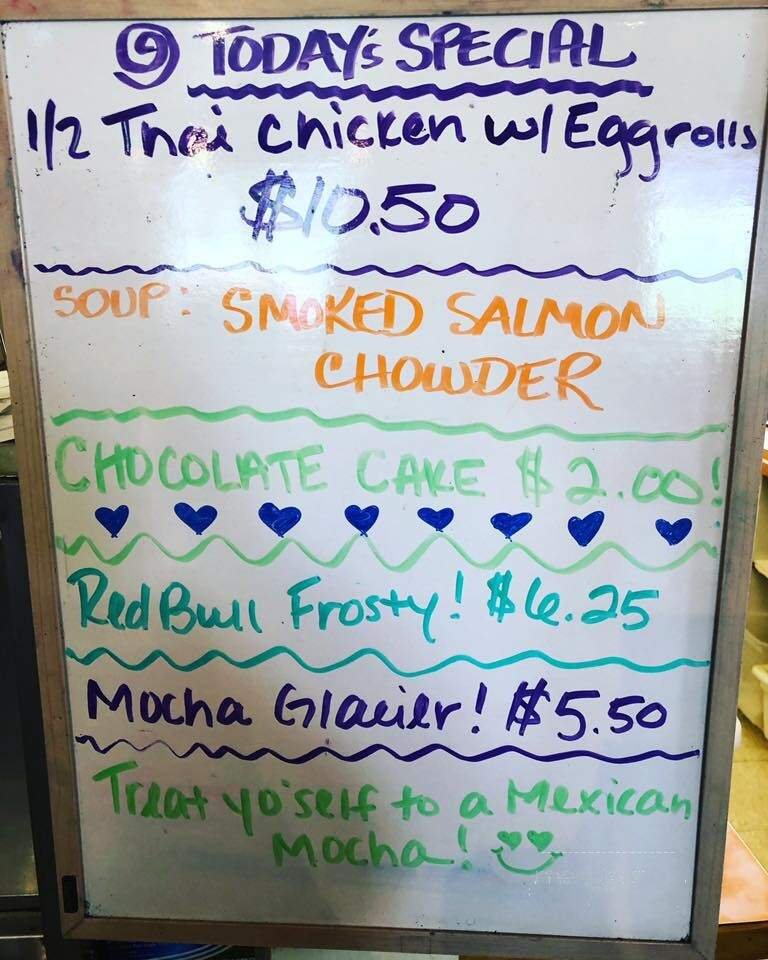 9 TODAY's SPECIAL
1/2 Thai chicken w/ Eggrolls
$10.50
SOUP: SMOKED SALMON
CHOWDER
CHOCOLATE CAKE $2.00!
Red Bull Frosty! $6.25
Mocha Glacier! $5.50
Treat yo'self to a Mexican
Mocha!